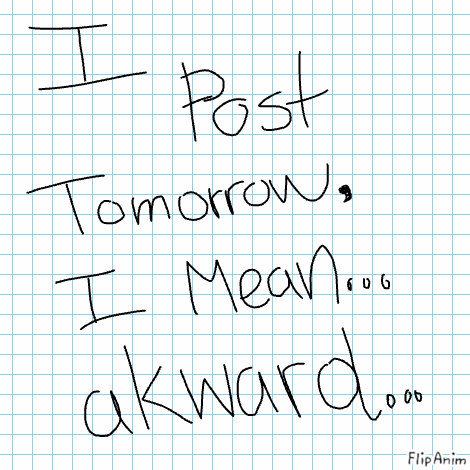 I
Post
Tomorrow.
I Mean....
akward....
FlipAnim